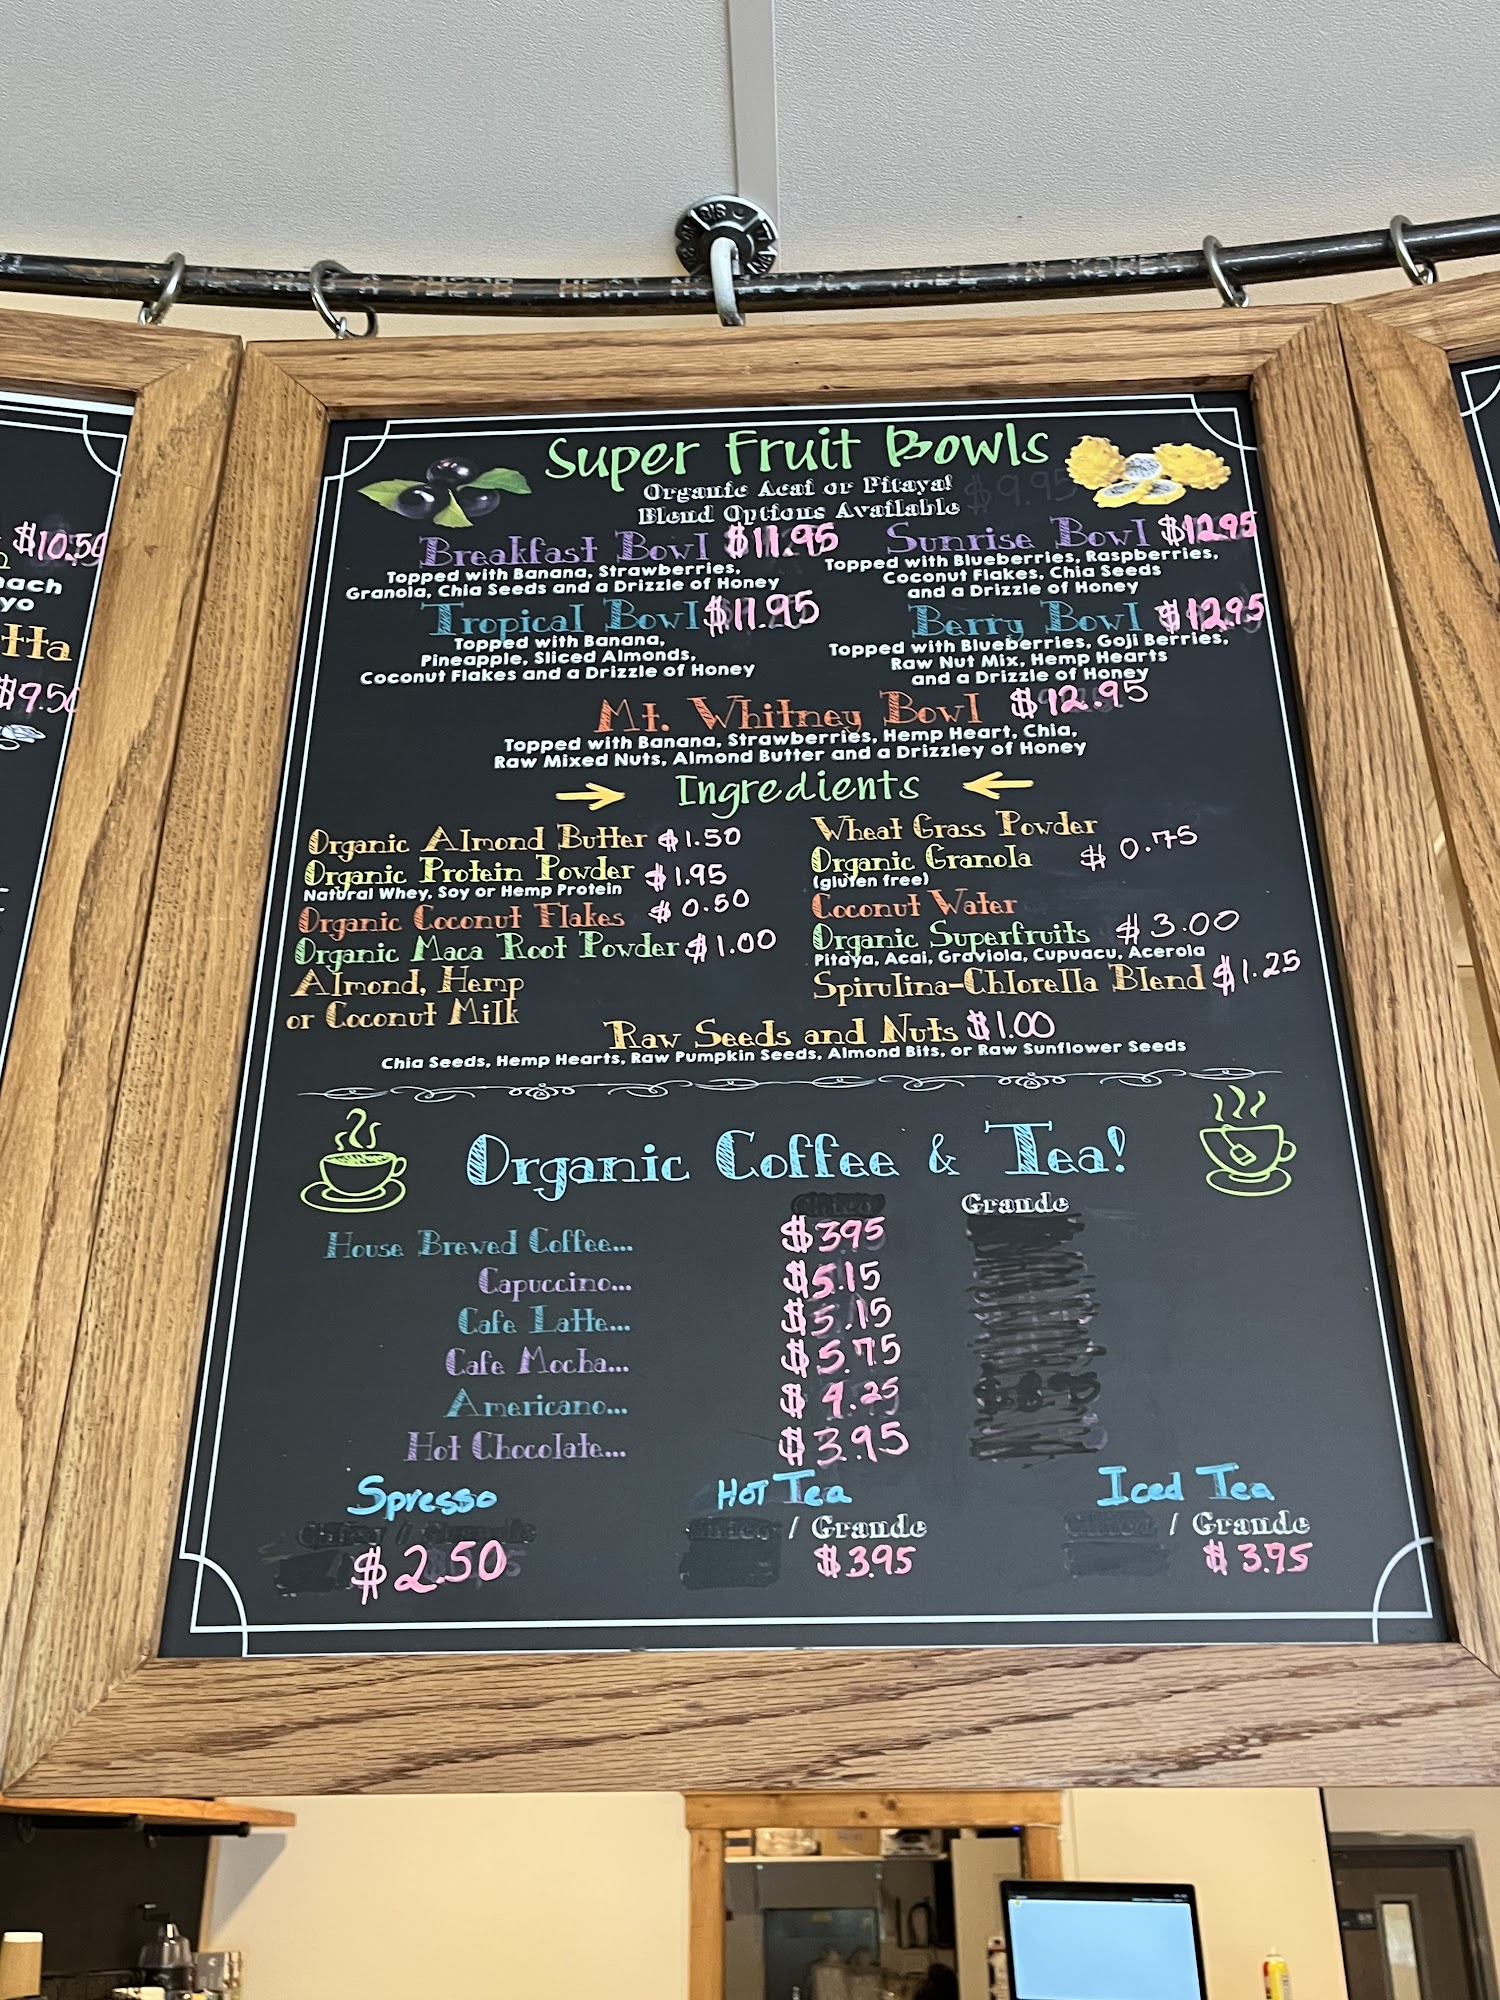 HEAT NO
MADE IN KOREA
Super Fruit Bowls
Organic Acai or Pitaya!
Blend Options Available
$9.95
Breakfast Bowl $11.95
Topped with Banana, Strawberries,
Granola, Chia Seeds and a Drizzle of Honey
Sunrise Bowl $12.95
Topped with Blueberries, Raspberries,
Coconut Flakes, Chia Seeds
and a Drizzle of Honey
Tropical Bowl $11.95
Topped with Banana,
Pineapple, Sliced Almonds,
Coconut Flakes and a Drizzle of Honey
Berry Bowl $12.95
Topped with Blueberries, Goji Berries,
Raw Nut Mix, Hemp Hearts
and a Drizzle of Honey
Mt. Whitney Bowl $12.95
Topped with Banana, Strawberries, Hemp Heart, Chia,
Raw Mixed Nuts, Almond Butter and a Drizzley of Honey
Ingredients
Organic Almond Butter $1.50
Organic Protein Powder $1.95
Natural Whey, Soy or Hemp Protein
Organic Coconut Flakes $0.50
Organic Maca Root Powder $1.00
Almond, Hemp
or Coconut Milk
Wheat Grass Powder
Organic Granola $0.75
(gluten free)
Coconut Water
Organic Superfruits $3.00
Pitaya, Acai, Graviola, Cupuacu, Acerola
Spirulina-Chlorella Blend $1.25
Raw Seeds and Nuts $1.00
Chia Seeds, Hemp Hearts, Raw Pumpkin Seeds, Almond Bits, or Raw Sunflower Seeds
Organic Coffee & Tea!
Chico Grande
House Brewed Coffee... $3.95
Capuccino... $5.15
Cafe Latte... $5.15
Cafe Mocha... $5.75
Americano... $4.25
Hot Chocolate... $3.95
Spresso
Chico / Grande
$2.50
Hot Tea
Chico / Grande
$3.95
Iced Tea
Chico / Grande
$3.95
$10.50
yo
tta
$9.50